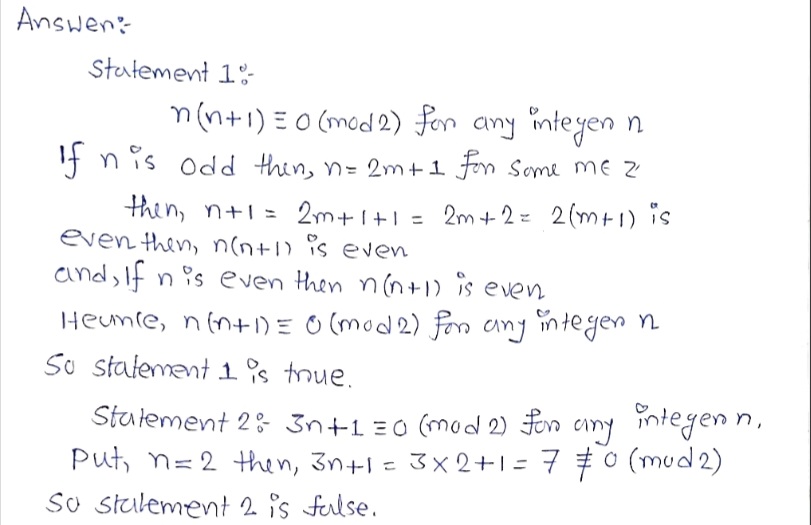 Answer:-
Statement 1:-
n(n+1) ≡ 0 (mod 2) for any integer n
If n is odd then, n = 2m+1 for some m ∈ Z
then, n+1 = 2m+1+1 = 2m+2 = 2(m+1) is
even then, n(n+1) is even
and, If n is even then n(n+1) is even
Heunce, n(n+1) ≡ 0 (mod 2) for any integer n
So statement 1 is true.
Statement 2:- 3n+1 ≡ 0 (mod 2) for any integer n.
Put, n=2 then, 3n+1 = 3×2+1 = 7 ≢ 0 (mod 2)
So statement 2 is false.